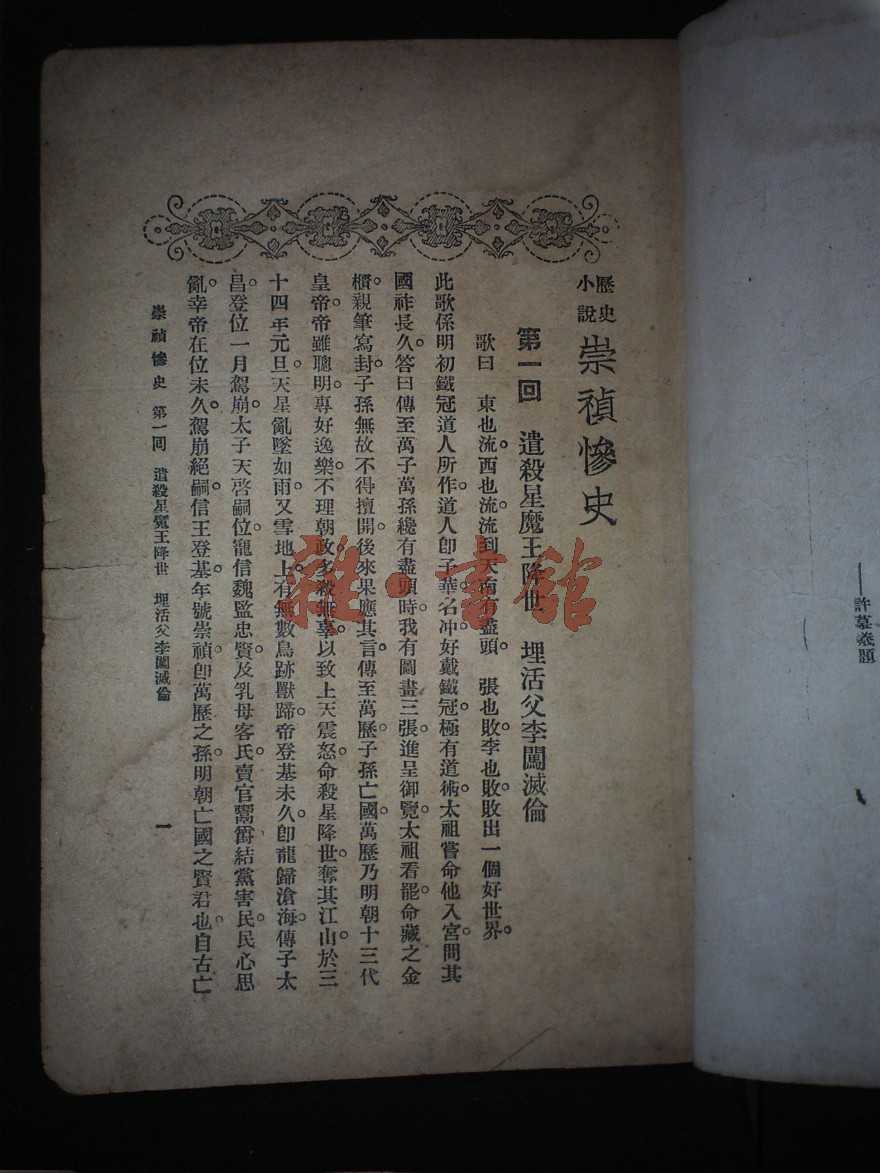 歷史小說 崇禎慘史
第一回 遣殺星魔王降世 埋活父李闖滅倫
歌曰 東也流。西也流。流到天南有盡頭。 張也敗。李也敗。敗出一個好世界。
此歌係明初鐵冠道人所作。道人卽子華。名冲。好戴鐵冠。極有道術。太祖嘗命他入宮。問其
國祚長久。答曰傳至萬子萬孫纔有盡頭時。我有圖畫三張。進呈御覽。太祖看罷。命藏之金
櫃。親筆寫封。子孫無故不得擅開。後來果應其言。傳至萬歷子孫亡國。萬歷乃明朝十三代
皇帝。帝雖聰明。專好逸樂。不理朝政。多殺無辜。以致上天震怒。命殺星降世。奪其江山。於三
十四年元旦。天星亂墜如雨。又雪地上。有無數鳥跡獸蹄。帝登基未久。卽龍歸滄海。傳子太
昌。登位一月駕崩。太子天啓嗣位。寵信魏監忠賢。及乳母客氏。賣官鬻爵。結黨害民。民心思
亂。幸帝在位未久。駕崩絕嗣。信王登基。年號崇禎。卽萬歷之孫。明朝亡國之賢君也。自古亡
崇禎慘史 第一回 遣殺星魔王降世 埋活父李闖滅倫 一
雜·書館